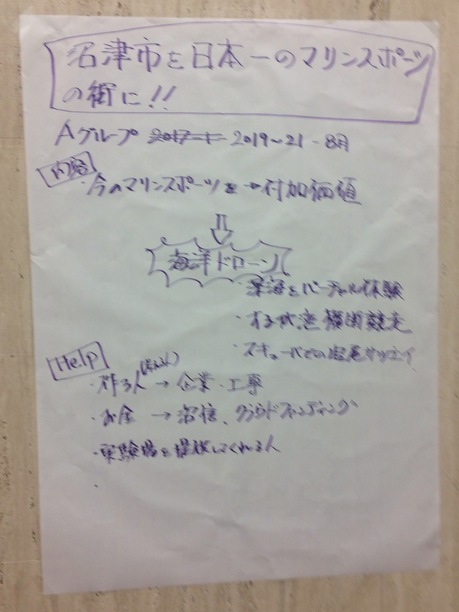 沼津市を日本一のマリンスポーツ
の街に!!
Aグループ 2019~21・8月
内容
・今のマリンスポーツを→付加価値
⇓
海洋ドローン
・深海をバーチャル体験
・する
・スキューバでの
Help
・作る人 → 企業・工専
・お金 → 沼信、クラウドファンディング
・実験場を提供してくれる人
・